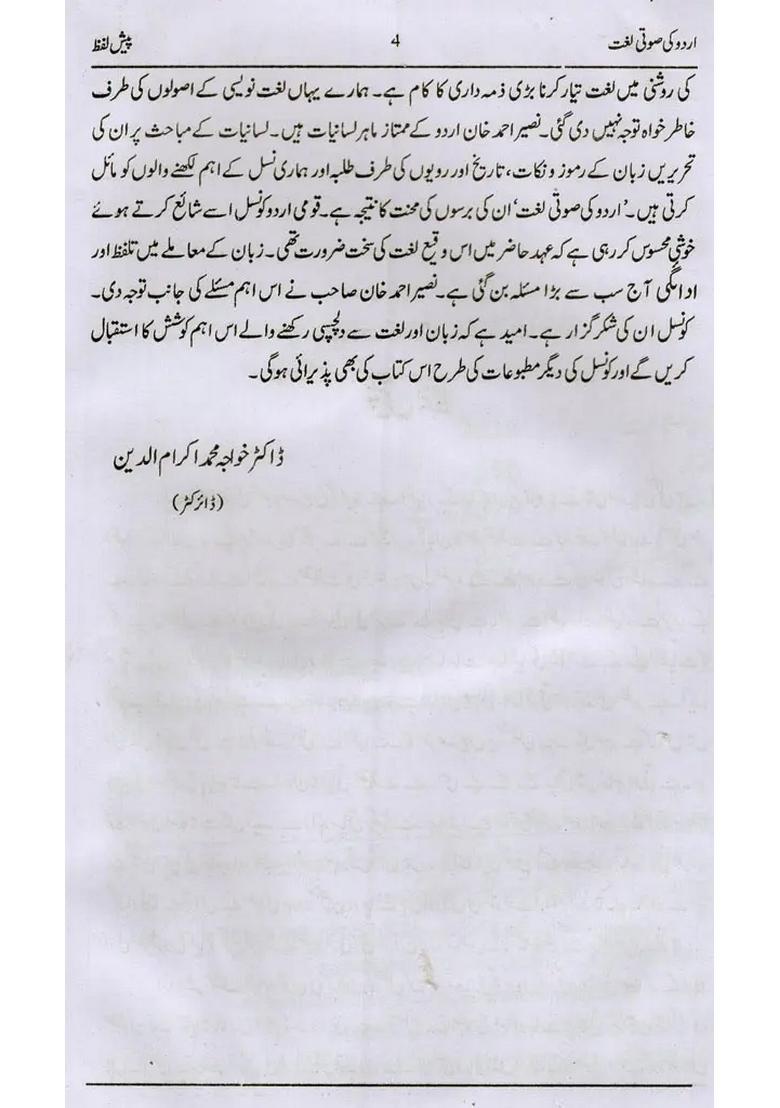 اردو کی صوتی لغت 4 پیش لفظ
کی روشنی میں لغت تیار کرنا بڑی ذمہ داری کا کام ہے۔ ہمارے یہاں لغت نویسی کے اصولوں کی طرف
خاطر خواہ توجہ نہیں دی گئی۔ نصیر احمد خان اردو کے ممتاز ماہر لسانیات ہیں۔ لسانیات کے مباحث پر ان کی
تحریریں زبان کے رموز و نکات، تاریخ اور رویوں کی طرف طلبہ اور ہماری نسل کے اہم لکھنے والوں کو مائل
کرتی ہیں۔ 'اردو کی صوتی لغت' ان کی برسوں کی محنت کا نتیجہ ہے۔ قومی اردو کونسل اسے شائع کرتے ہوئے
خوشی محسوس کر رہی ہے کہ عہد حاضر میں اس وقیع لغت کی سخت ضرورت تھی۔ زبان کے معاملے میں تلفظ اور
ادائگی آج سب سے بڑا مسئلہ بن گئی ہے۔ نصیر احمد خان صاحب نے اس اہم مسئلے کی جانب توجہ دی۔
کونسل ان کی شکر گزار ہے۔ امید ہے کہ زبان اور لغت سے دلچسپی رکھنے والے اس اہم کوشش کا استقبال
کریں گے اور کونسل کی دیگر مطبوعات کی طرح اس کتاب کی بھی پذیرائی ہوگی۔
ڈاکٹر خواجہ محمد اکرام الدین
(ڈائرکٹر)